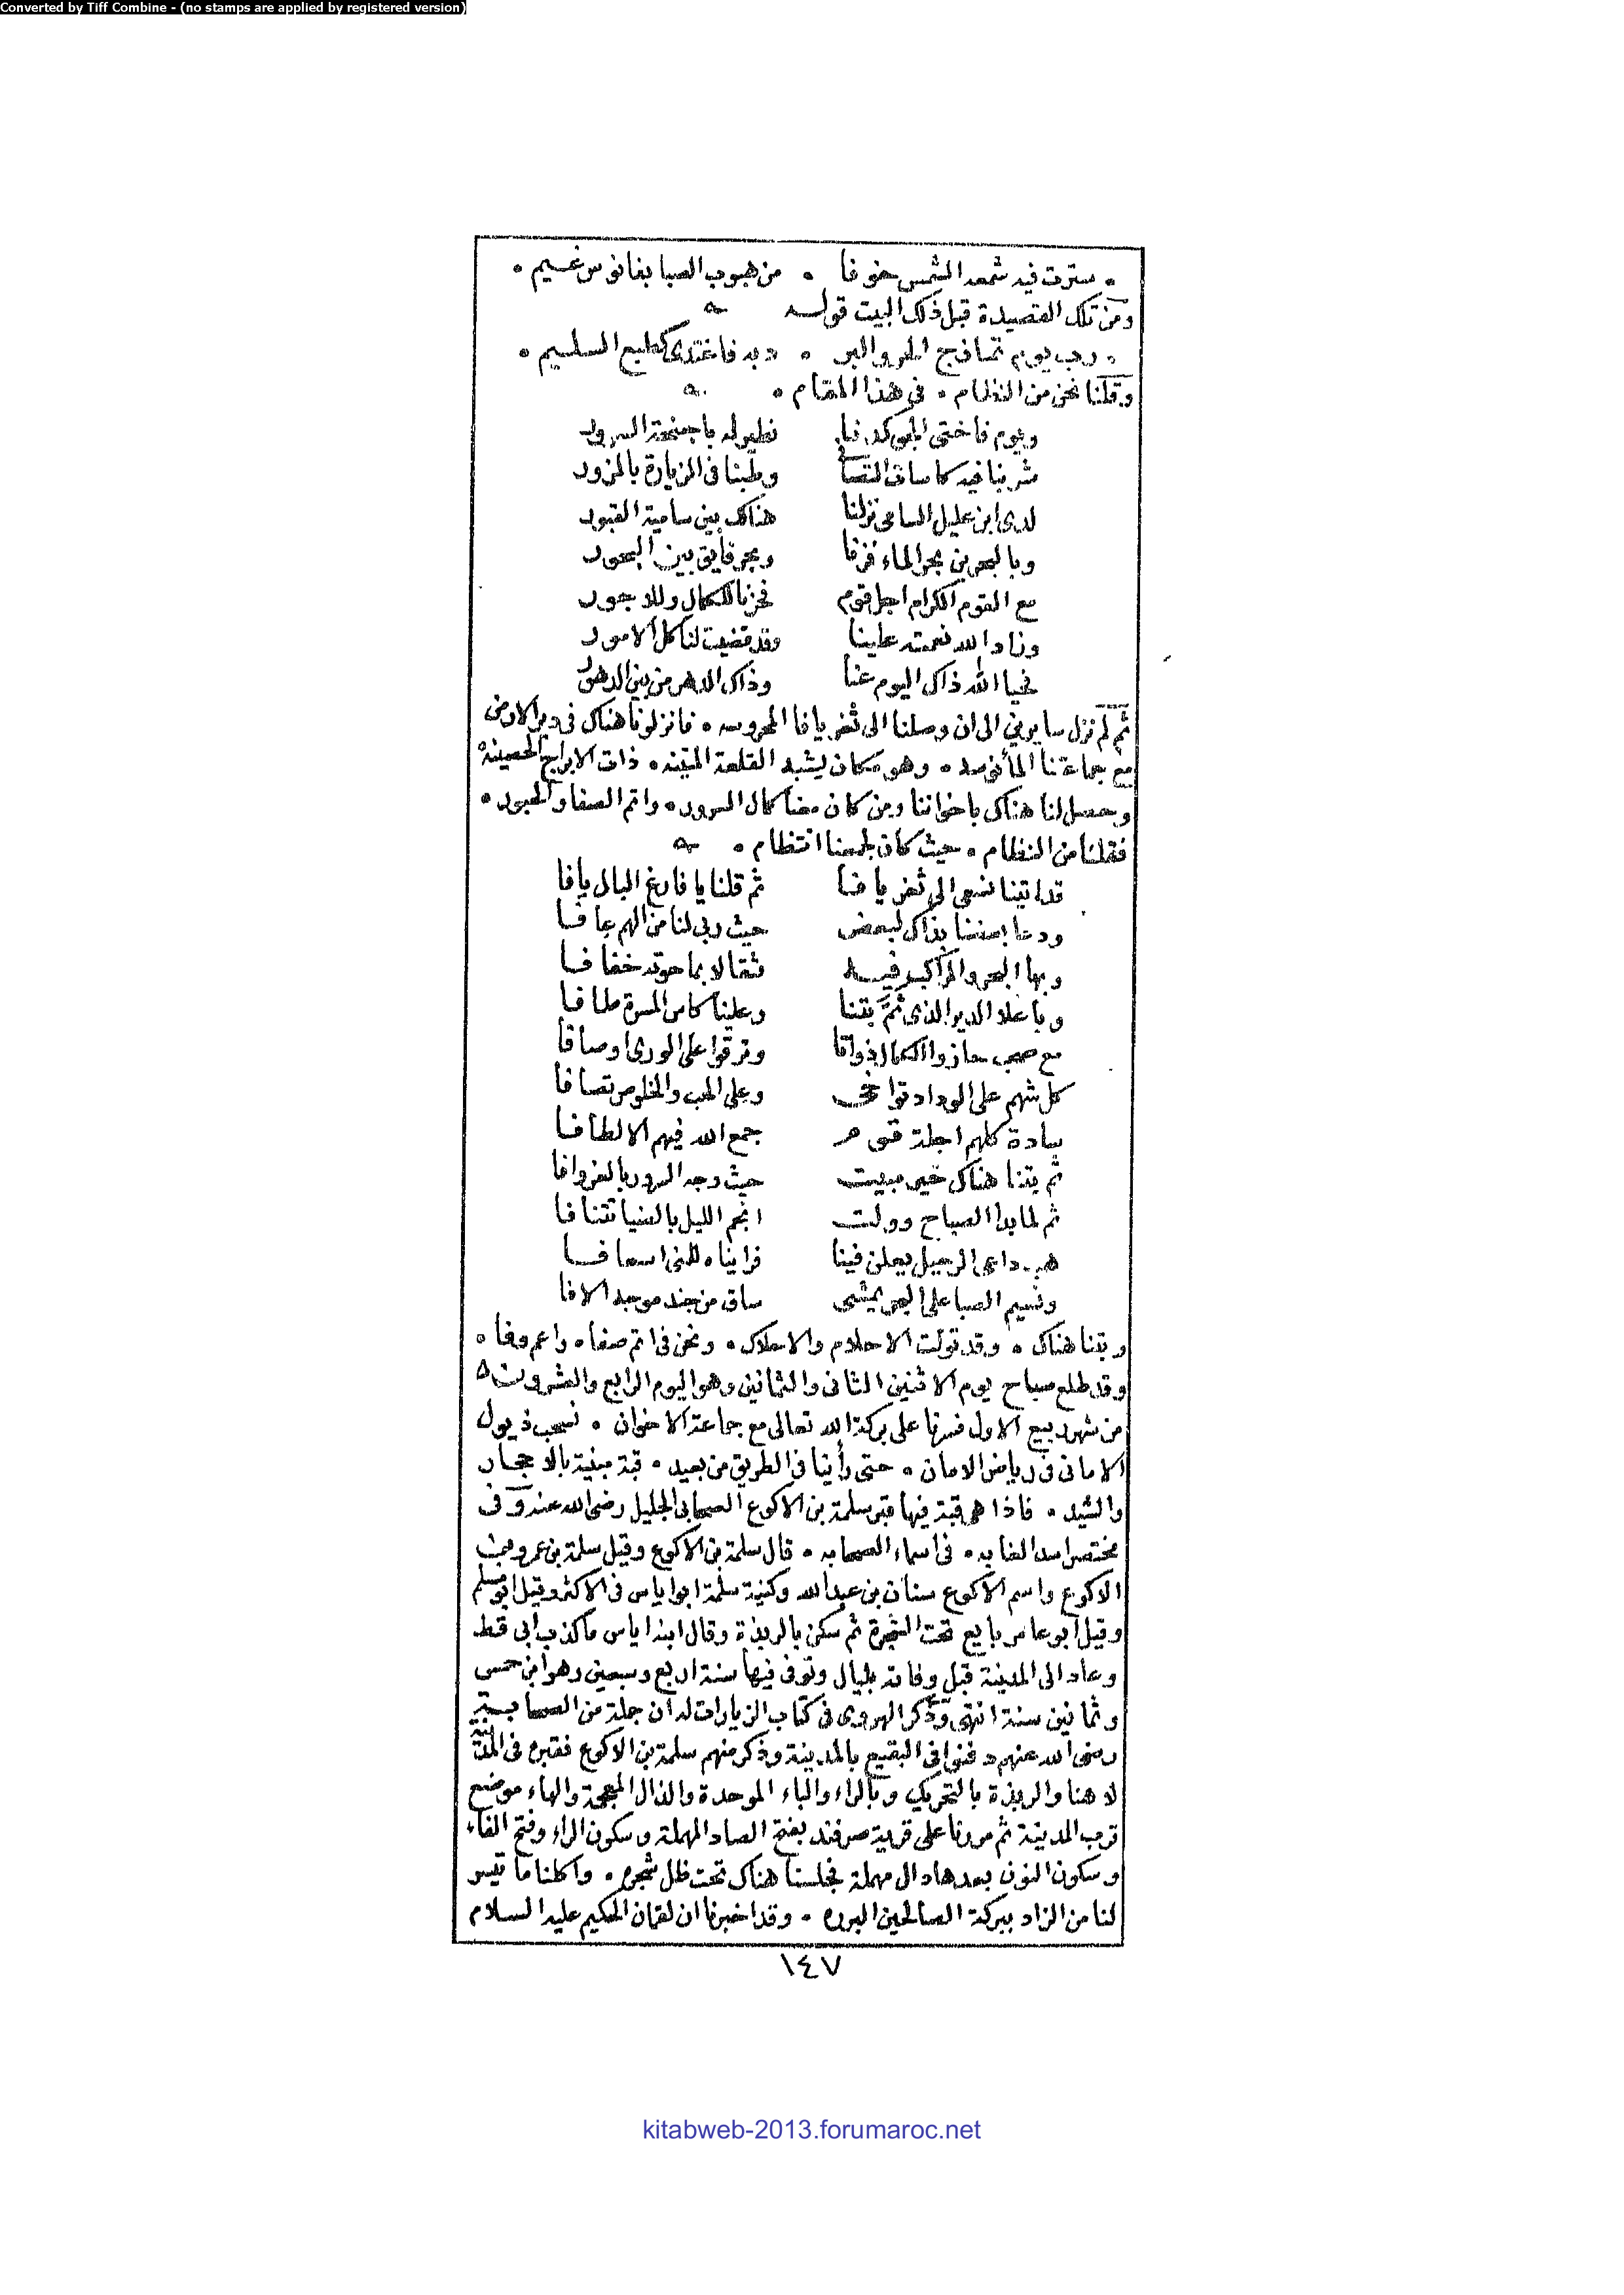 Converted by Tiff Combine - (no stamps are applied by registered version)
سترت فيه شمعة الشمس خوفا • من هبوب الصبا بفانوس غيم •
ومن تلك القصيدة قبل ذلك البيت قوله
• رب يوم تمازج الحر والبر • د به فاغتدى كطبع السليم •
وقلنا نحن من النظام • في هذا المقام •
ويوم فاختي الجو كدنا نطير له باجنحة السرور
شربنا فيه كاسات التصافي وطبنا في الزيارة بالمزور
لدى ابن عليل السامي نزلنا هناك بين سامية القبور
وبالبحرين بحر الماء فزنا وبحر فايق بين البحور
مع القوم الكرام اجل قوم فحزنا للكمال وللاجور
وزاد الله نعمته علينا وقد قضيت لنا كل الامور
فحيا الله ذاك اليوم عنا وذاك الدهر من بين الدهور
ثم لم نزل سايرين الى ان وصلنا الى ثغر يافا المحروسه • فانزلونا هناك في دير الارمن
مع جماعتنا المأنوسه • وهو مكان يشبه القلعة المتينه • ذات الابراج الحصينة
وحصل لنا هناك باخواننا ومن كان معنا كمال السرور • واتم الصفا والحبور •
فقلنا من النظام • حيث كان لجمعنا انتظام •
قد اتينا نسعى الى ثغر يافا ثم قلنا يا فارغ البال يافا
ودعا بعضنا بذاك لبعض حيث ربي لنا من الهم عافا
وبها البحر والمراكب فيه ثقالا بما حوته خفافا
وباعلا الدير الذي ثم بتنا وعلينا كاس المسرة طافا
مع صحب حازوا الكمال ذواتا وترقوا على الورى اوصافا
كل شهم على الوداد توافى وعلى الحب والخلوص تصافا
سادة كلهم اجلة قوم جمع الله فيهم الالطافا
ثم بتنا هناك خير مبيت حيث وجه السرور بالعز وافا
ثم لما بدا الصباح وولت انجم الليل بالضيا تتنافا
هب داعي الرحيل يعلن فينا فرايناه للمنى اسعافا
ونسيم الصبا على البحر يمشي ساق من جند موجه الافا
وبتنا هناك • وقد تولت الاحلام والاحلاك • ونحن في اتم صفاء • واعم وفاء •
وقد طلع صباح يوم الاثنين الثاني والثمانين وهو اليوم الرابع والعشرون
من شهر ربيع الاول فسرنا على بركة الله تعالى مع جماعة الاخوان • نسحب ذيول
الاماني في رياض الامان • حتى رأينا في الطريق من بعيد • قبة مبنية بالاحجار
والشيد • فاذا هي قبة فيها قبر سلمة بن الاكوع الصحابي الجليل رضي الله عنه وفي
مختصر اسد الغابه • في اسماء الصحابه • قال سلمة بن الاكوع وقيل سلمة بن عمرو بن
الاكوع واسم الاكوع سنان بن عبد الله وكنية سلمة ابو اياس في الاكثر وقيل ابو مسلم
وقيل ابو عامر بايع تحت الشجرة ثم سكن بالربذة وقال ابنه اياس ما كذب ابي قط
وعاد الى المدينة قبل وفاته بليال وتوفي فيها سنة اربع وسبعين وهو ابن خمس
وثمانين سنة انتهى وذكر الهروي في كتاب الزيارات له ان جملة من الصحابة
رضي الله عنهم دفنوا في البقيع بالمدينة وذكر منهم سلمة بن الاكوع فقبره في المدينة
لا هنا والربذة بالتحريك وبالراء والباء الموحدة والذال المعجمة والهاء موضع
قرب المدينة ثم مررنا على قرية صرفند بفتح الصاد المهملة وسكون الراء وفتح الفاء
وسكون النون بعدها دال مهملة فجلسنا هناك تحت ظل شجره • واكلنا ما تيسر
لنا من الزاد ببركة الصالحين البرره • وقد اخبرنا ان لقمان الحكيم عليه السلام
١٤٧
kitabweb-2013.forumaroc.net